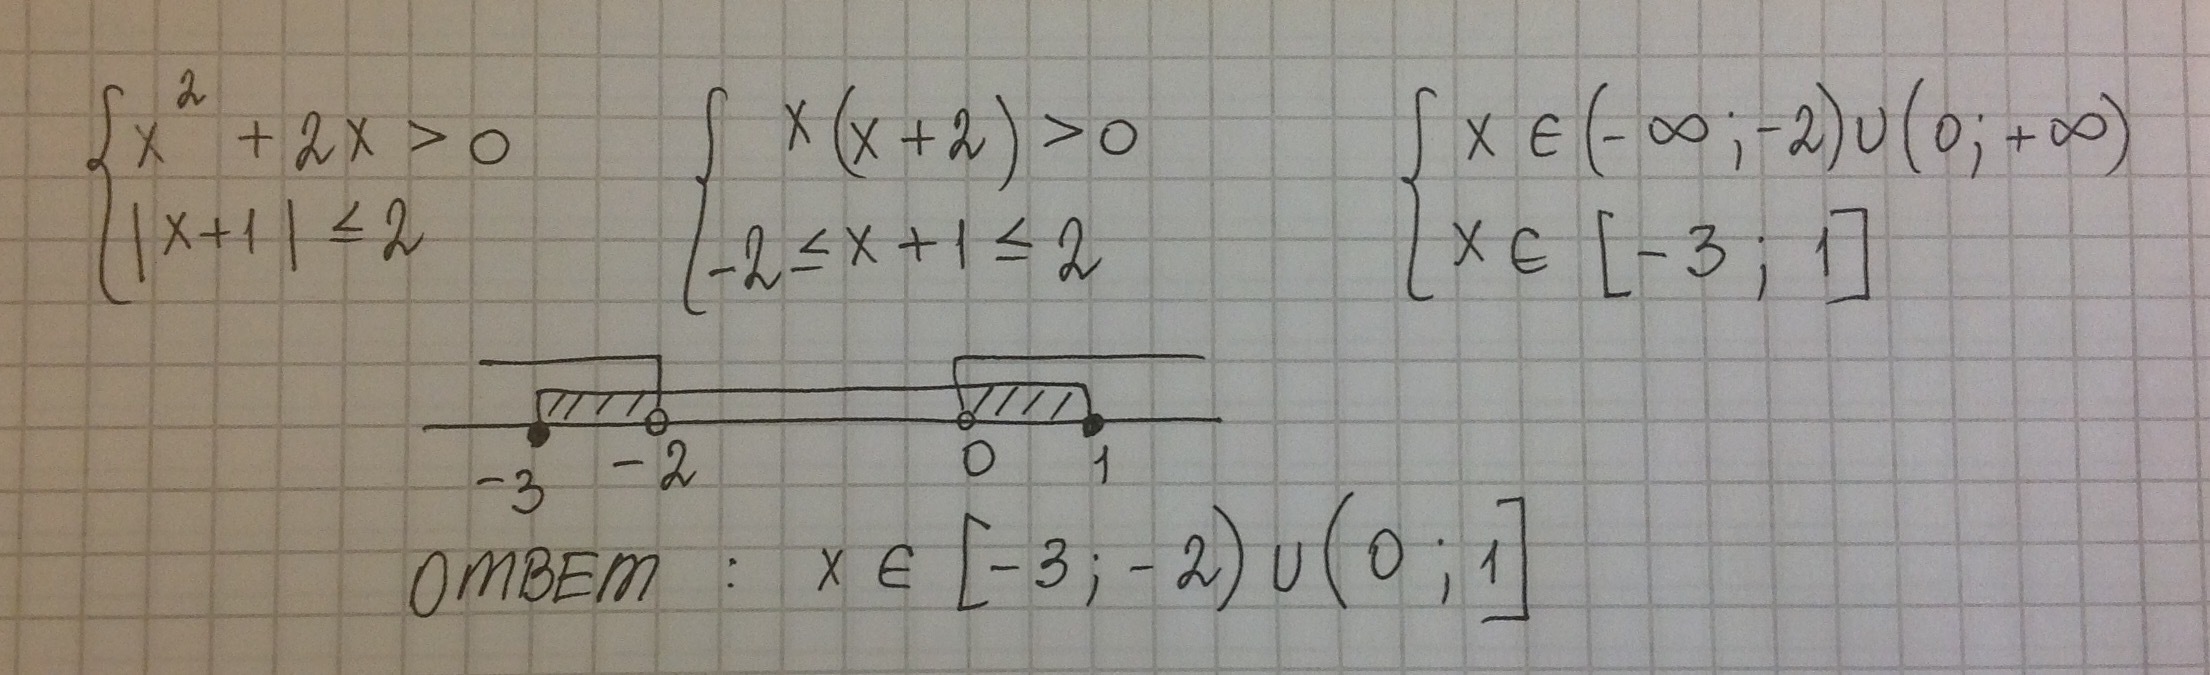 { x² + 2x > 0 { x(x+2) > 0 { x ∈ (-∞; -2) ∪ (0; +∞)
|x+1| ≤ 2 -2 ≤ x + 1 ≤ 2 x ∈ [-3; 1]
-3 -2 0 1
ОТВЕТ : x ∈ [-3; -2) ∪ (0; 1]